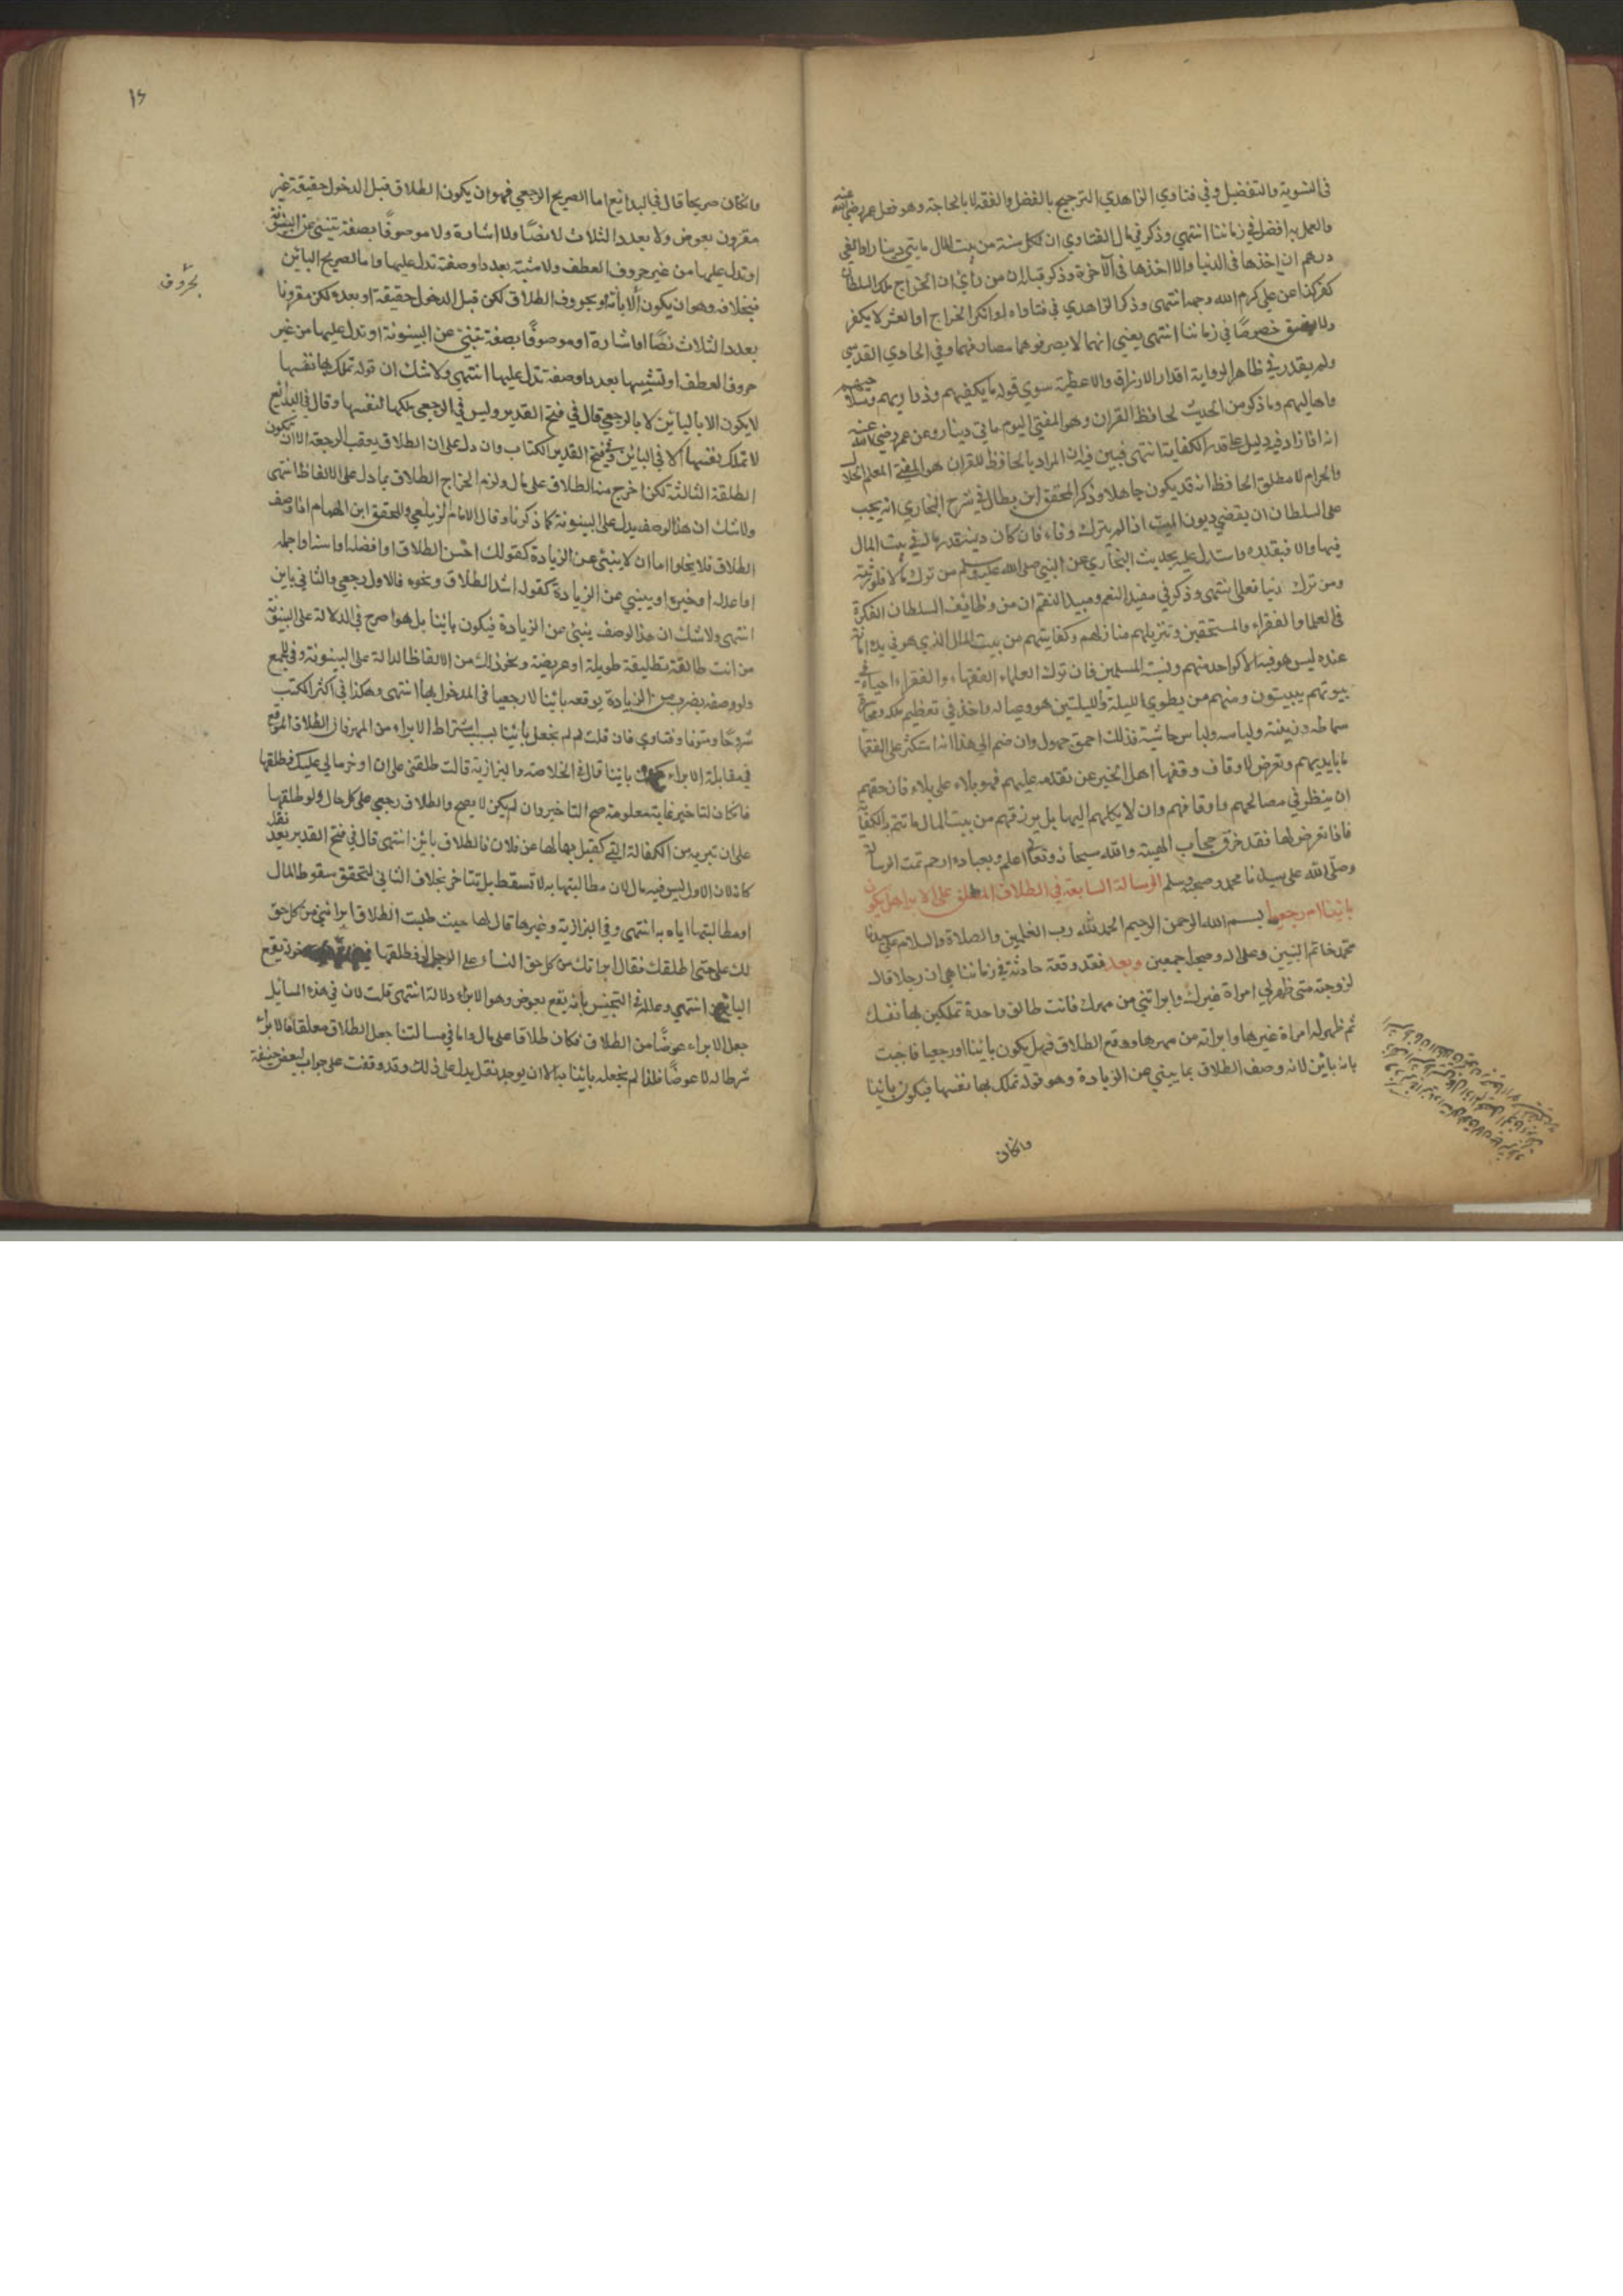 في التسوية والتفضيل وفي فتاوي الزاهدي الترجيح بالفضل والفقه لا بالحاجة وهو فعل عمر رضي الله عنه
والعمل به افضل في زماننا انتهي وذكر في مال الفتاوي ان لكل سنة من بيت المال مايتي دينار او الفي
درهم ان اخذها في الدنيا والا اخذها في الآخرة وذكر قبله ان من رأي ان الخراج ملك السلطان
كفر كذا عن علي كرم الله وجهه انتهى وذكر الزاهدي في فتاواه لو انكر الخراج او العشر لا يكفر
ولا يفسق خصوصًا في زماننا انتهى يعني انهما لا يصرفوهما مصارفهما وفي الحاوي القدسي
ولم يقدر في ظاهر الرواية اقدار الارزاق والاعطية سوي قوله ما يكفيهم وذراريهم وسلاحهم
واهاليهم وما ذكر من الحديث لحافظ القران وهو المفتي اليوم مايتي دينار وعن عمر رضي الله عنه
انه اذا زاد فيه دليل على قدر الكفاية انتهى فبين فيه ان المراد بالحافظ للقران هو المفتي المعلم الحلال
والحرام لا مطلق الحافظ انه قد يكون جاهلا وذكر المحقق ابن بطال في شرح البخاري انه يجب
على السلطان ان يقضي ديون الميت اذا لم يترك وفاء فان كان دينه قدر ماله في بيت المال
فبها والا فبقدره واستدل عليه بحديث البخاري عن النبي صلى الله عليه وسلم من ترك مالا فلورثته
ومن ترك دينا فعلي انتهى وذكر في مفيد النعم ومبيد النقم ان من وظائف السلطان الفكرة
في العلما والفقراء والمستحقين وتنزيلهم منازلهم وكفايتهم من بيت المال الذي هو في يده امانة
عنده ليس هو فيه الا كواحد منهم ونسبة المسلمين فان ترك العلماء الفقهاء والفقراء احياء في
بيوتهم يبيتون ومنهم من يطوي الليلة والليلتين هو وعياله واخذ في تعظيم ملكه
سماطه وزينته ولباسه ولباس حاشيته فذلك احمق جهول وان ضم الي هذا انه استكثر على الفقها
ما بايديهم وتعرض لاوقاف وقفها اهل الخير عن تقدمه عليهم فهو بلاء على بلاء فان حقهم
ان ينظر في مصالحهم واوقافهم وان لا يكلهم اليها بل يرزقهم من بيت المال ما تتم به الكفاية
فاذا تعرض لها فقد خرق حجاب الهيبة والله سبحانه وتعالى اعلم وبعباده ارحم تمت الرسالة
وصلى الله على سيدنا محمد وصحبه وسلم الرسالة السابعة في الطلاق المعلق على الابرا هل يكون
بائينا ام رجعيا بسم الله الرحمن الرحيم الحمد لله رب العلمين والصلاة والسلام على سيدنا
محمد خاتم النبيين وعلى اله وصحبه اجمعين وبعد فقد وقعة حادثة في زماننا هي ان رجلا قال
لزوجته متى ظهر لي امراة غيرك وابراتني من مهرك فانت طالق واحدة تملكين بها نفسك
ثم ظهر له امراة غيرها وابراته من مهرها ووقع الطلاق فهل يكون بائينا او رجعيا فاجبت
بانه بائن لانه وصف الطلاق بما ينبي عن الزيادة وهو قوله تملك بها نفسها فيكون بائينا
وان كان
١٤
وان كان صريحا قال في البدائع اما الصريح الرجعي فهو ان يكون الطلاق قبل الدخول حقيقة غير
مقرون بعوض ولا بعدد الثلاث لا نصًا ولا اشارة ولا موصوفًا بصفة تنبئ عن البينونة
او تدل عليها من غير حروف العطف ولا مشبه بعدد او صفة تدل عليها واما الصريح البائن
فبخلافه وهو ان يكون بحروف الطلاق لكن قبل الدخول حقيقة او بعده لكن مقرونا
بحروف
بعدد الثلاث نصًا او اشارة او موصوفًا بصفة تنبئ عن البينونة او تدل عليها من غير
حروف العطف او تشبيهها بعدد او صفة تدل عليها انتهي ولا شك ان قوله تملك بها نفسها
لا يكون الا بالبائن لا بالرجعي قال في فتح القدير وليس في الرجعي ملكها لنفسها وقال في البدائع
لا تملك نفسها الا في البائن وفي فتح القدير الكتاب وان دل على ان الطلاق يعقب الرجعة الا ان تكون
الطلقة الثالثة لكن اخرج منه الطلاق على مال ولزم اخراج الطلاق بما دل على الالفاظ انتهى
ولا شك ان هذا الوصف يدل على البينونة كما ذكرنا وقال الامام الزيلعي والمحقق ابن الهمام اذا وصف
الطلاق فلا يخلوا اما ان لا ينبئ عن الزيادة كقولك احسن الطلاق او افضله او اسنا او اجمله
او اعدله او خيره او ينبئ عن الزيادة كقوله اشد الطلاق ونحوه فالاول رجعي والثاني باين
انتهى ولا شك ان هذا الوصف ينبئ عن الزيادة فيكون بائنا بل هو اصرح في الدلالة على البينونة
من انت طالقة تطليقة طويلة او عريضة ونحو ذلك من الالفاظ الدالة على البينونة وفي المجمع
ولو وصفه بضرب من الزيادة يوقعه بائنا لا رجعيا في المدخول بها انتهى وهكذا في اكثر الكتب
شروحًا ومتونا وفتاوي فان قلت لم لم تجعل بائينا بسبب اشتراط الابراء من المهر فان الطلاق الموقع
في مقابلة الابراء بائينا قال في الخلاصة والبزازية قالت طلقني على ان اوخر مالي عليك فطلقها
فان كان للتاخير غاية معلومة صح التاخير وان لم يكن لا يصح والطلاق رجعي على كل حال ولو طلقها
على ان تبريه من الكفالة التي كفيل بها لها عن فلان فالطلاق بائن انتهى قال في فتح القدير بعد نقله
كانه لان الاول ليس فيه مال لان مطالبتها به لا تسقط بل تتاخر بخلاف الثاني لتحقق سقوط المال
او مطالبتها اياه به انتهى وفي البزازية وغيرها قال لها حيث طلبت الطلاق ابرائني من كل حق
لك على حتى اطلقك فقال ابراتك من كل حق النساء على الرجل فطلقها يقع
البائن انتهي وعلله في التجنيس بانه يقع بعوض وهو الابراء دلالة انتهى قلت لان في هذه المسائل
جعل الابراء عوضًا من الطلاق فكان طلاقا على مال واما في مسالتنا جعل الطلاق معلقا فالابراء
شرطا له لا عوضًا فلذا لم نجعله بائينا به الا ان يوجد نقل يدل على ذلك وقد وقفت على جواب لبعض حنيفة